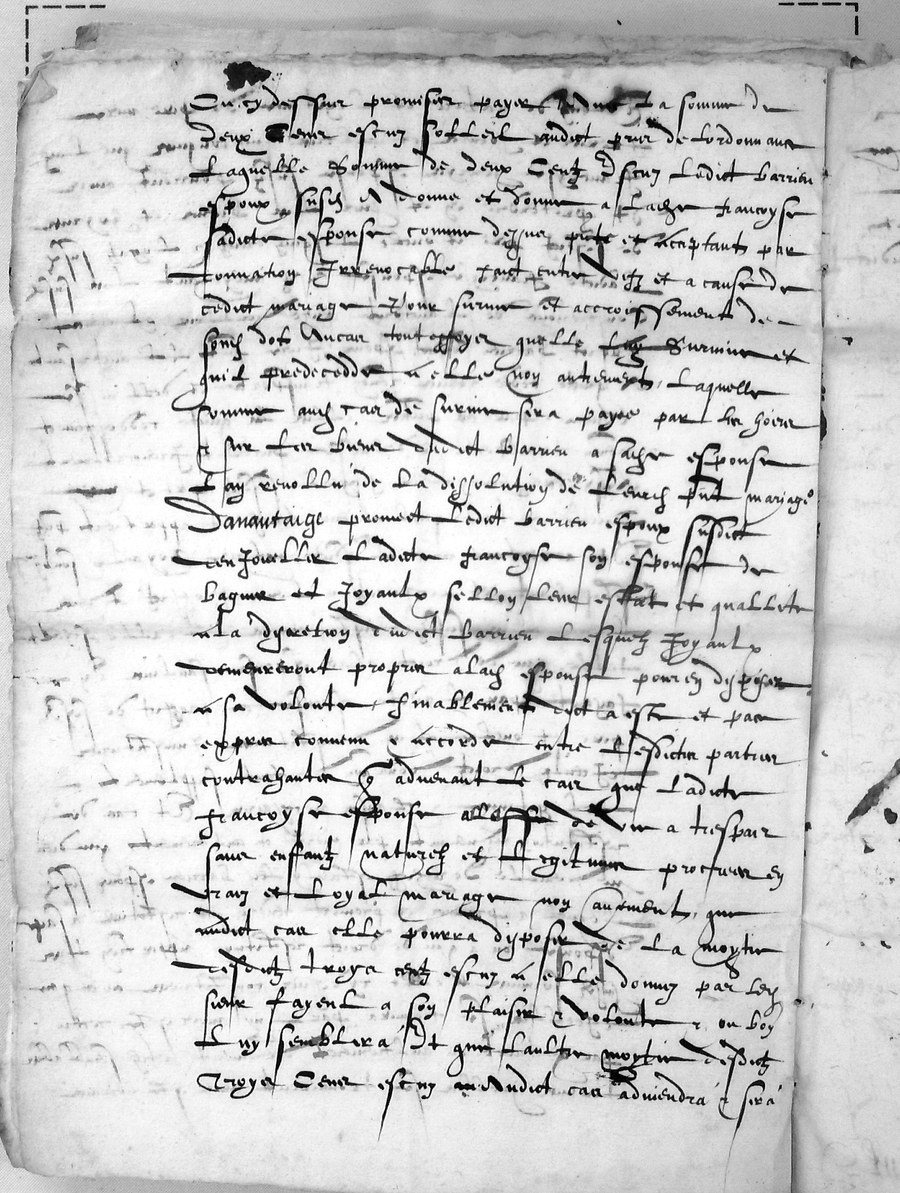 cy dessus promiser payer la somme de
deux Cens escuz solleil audict prier de lordonnance
Laquelle Somme de deux Centz Escuz Ledict barrieu
espoux susd a donne et donne a Lade francoyse
sadicte espouse comme dessus pnte et acceptante par
donnation Irrevocable faict entre vifz et a cause de
cedict mariage pour survie et accroissement de
sond dot Aucas touteffoyes quelle luy Survive et
quil predecedde a elle non autrement, Laquelle
somme aud cas de survie sera payee par les hoirs
et sur les biens dudict barrieu a sade espouse
Lan revollu de La dissolution de leurd pnt mariage
Davantaige promect Ledict barrieu espoux susdict
denJoueller Ladicte francoyse son espouse de
bagues et Joyaulx sellon leur estat et quallite
a la discretion dudict barrieu Lesquelz Joyaulx
demeureront propres a lad espouse pour en disposer
a sa volonte, finablement dict a este et par
expres convenu et accorde entre Lesdictes parties
contrahantes q advenant le cas que Ladicte
francoyse espouse de vie a trespas
sans enffantz naturelz et Legitimes procrees en
vray et Loyal mariage non autrement, que
audict cas elle pourra disposer de La moytie
desdictz troys centz escuz a elle donnez par led
sieur fayent a son plaisir et volonte et ou bon
Luy semblera Et que Laultre moytie desdictz
Troys Cens escuz audict cas adviendra et sera